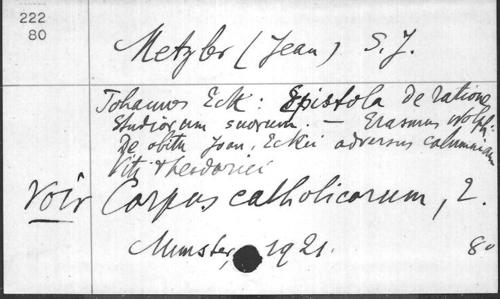 222
80
Metzler (Jean) S. J.
Johannes Eck: Epistola de ratione
studiorum suorum. — Erasmus Wolph:
De obitu Joan. Eckii adversus calumniam
Viti Theodorici
voir Corpus catholicorum, 2.
Munster, 1921. 8o